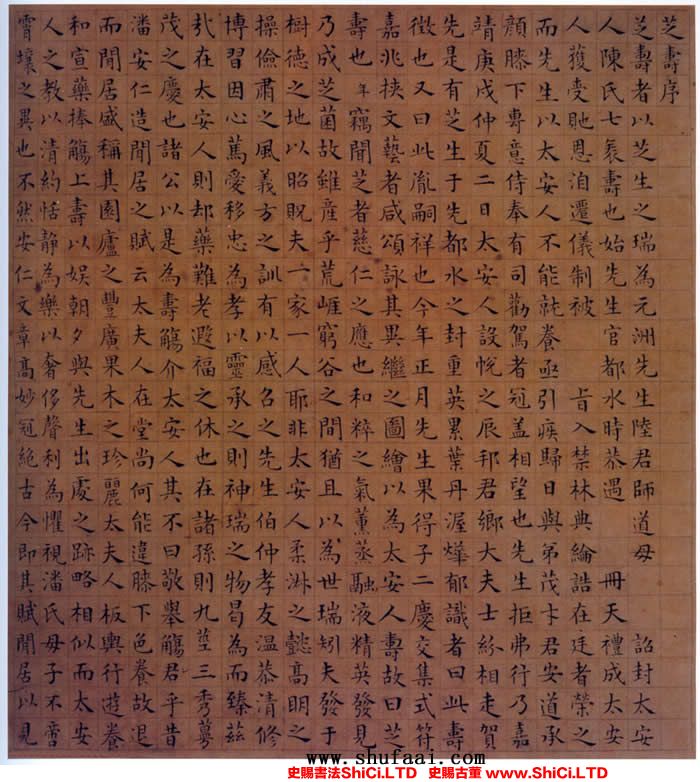 芝壽序
芝壽者以芝生之瑞為元洲先生陸君師道母 詔封太安
人陳氏七袠壽也始先生官都水時恭遇 冊天 禮成太安
人獲受貤恩洎遷儀制被 旨入禁林典綸誥在廷者榮之
而先生以太安人不能就養亟引疾歸日與弟茂才君安道承
顏膝下專意侍奉有司勸駕者冠盖相望也先生拒弗行乃嘉
靖庚戌仲夏二日太安人設帨之辰邦君鄉大夫士紛相走賀
先是有芝生于先都水之封重英累葉丹渥燁郁識者曰此壽
徵也又曰此胤嗣祥也今年正月先生果得子二慶交集式符
嘉兆挾文藝者咸頌詠其異繼之圖繪以為太安人壽故曰芝
壽也年竊聞芝者慈仁之應也和粹之氣薰蒸融液精英發見
乃成芝菌故雖産乎荒崕窮谷之間猶且以為世瑞矧夫發于
樹德之地以昭貺夫一家一人耶非太安人柔淋之懿高明之
操儉肅之風義方之訓有以感召之先生伯仲孝友温恭清修
博習因心篤愛移忠為孝以靈承之則神瑞之物曷為而臻茲
㢤在太安人則却藥難老遐福之休也在諸孫則九莖三秀蕚
茂之慶也諸公以是為壽觴介太安人其不曰敬舉觴君乎昔
潘安仁造閒居之賦云太夫人在堂尚何能違膝下色養故退
而閒居盛稱其園廬之豐廣果木之珍麗太夫人板輿行遊養
和宣藥捧觴上壽以娱朝夕與先生出處之跡略相似而太安
人之教以清約恬静為樂以奢侈聲利為懼視潘氏母子不啻
霄壤之異也不然安仁文章髙妙冠絶古今即其賦閒居以見
www.shufaai.com
史賜書法ShiCi.LTD 史賜古董 www.ShiCi.LTD